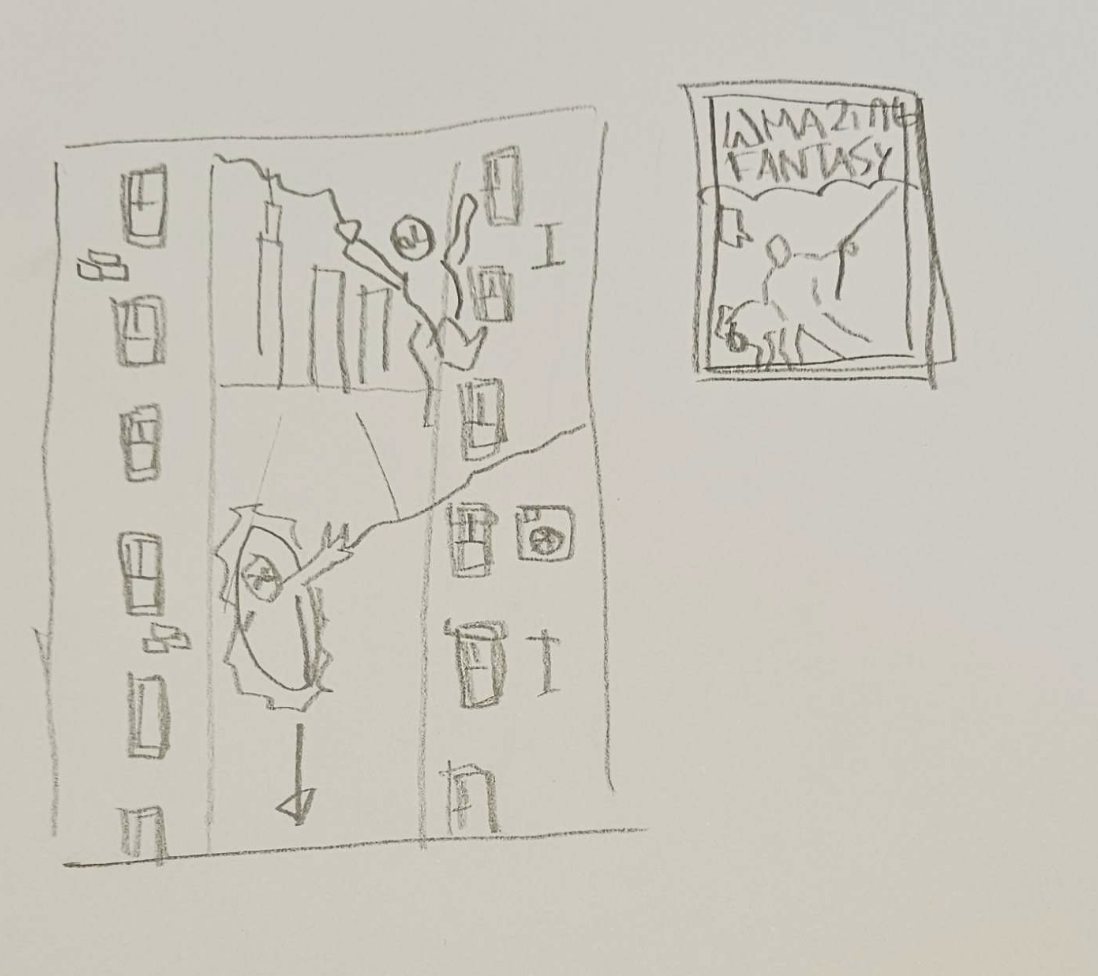 AMAZING
FANTASY